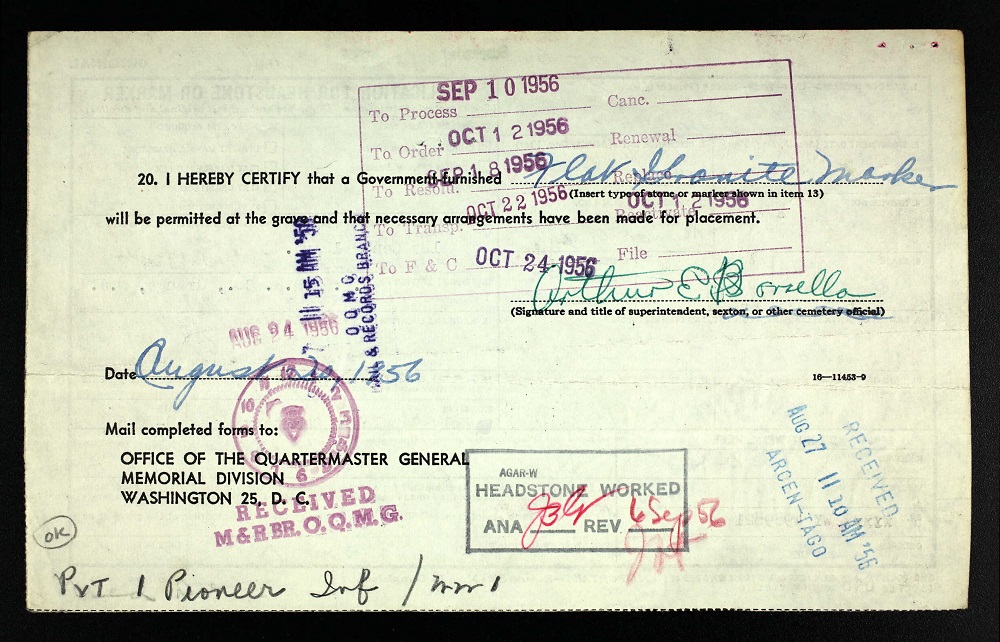 SEP 10 1956
To Process
Canc.
OCT 12 1956
To Order
Renewal
SEP 18 1956
To Resolu.
Replace
20. I HEREBY CERTIFY that a Government-furnished Flat Granite Marker
(Insert type of stone or marker shown in item 13)
OCT 22 1956
OCT 12 1956
will be permitted at the grave and that necessary arrangements have been made for placement.
To Transp.
To F & C
OCT 24 1956
File
Arthur E. Borsella
(Signature and title of superintendent, sexton, or other cemetery official)
11 15 AM '56
O Q M G
MAIL & RECORDS BRANCH
AUG 24 1956
Date August 20, 1956
16—11453-9
Mail completed forms to:
OFFICE OF THE QUARTERMASTER GENERAL
MEMORIAL DIVISION
WASHINGTON 25, D. C.
RECEIVED
M&R BR. O.Q.M.G.
AGAR-W
HEADSTONE WORKED
ANA REV 6 Sep 56
RECEIVED
AUG 27 11 10 AM '56
ARCEN-TAGO
OK
PVT 1 Pioneer Inf / WW 1